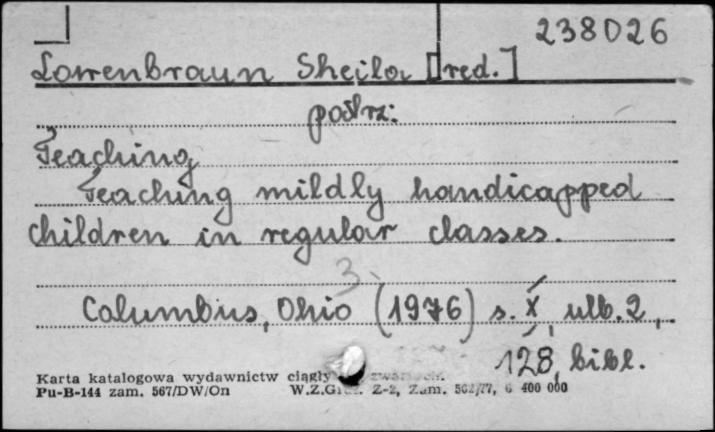 238026
Lowenbraun Sheila [red.]
patrz:
Teaching
Teaching mildly handicapped
children in regular classes.
3
Columbus, Ohio (1976) s. X, ulb. 2,
128, bibl.
Karta katalogowa wydawnictw ciągły
Pu-B-144 zam. 567/DW/On W.Z.Graf. Z-2, Zam. 562/77, 6 400 000